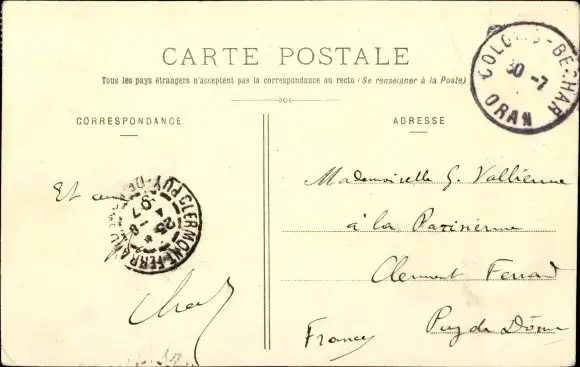 CARTE POSTALE
Tous les pays étrangers n'acceptent pas la correspondance au recto (Se renseigner à la Poste)
CORRESPONDANCE
ADRESSE
COLOMB-BECHAR
30 -7
ORAN
Mademoiselle G. Vallienne
à la Parisienne
Clermont Ferrand
Puy de Dôme
France
Et
CLERMONT-FERRAND
PUY-DE-DOME